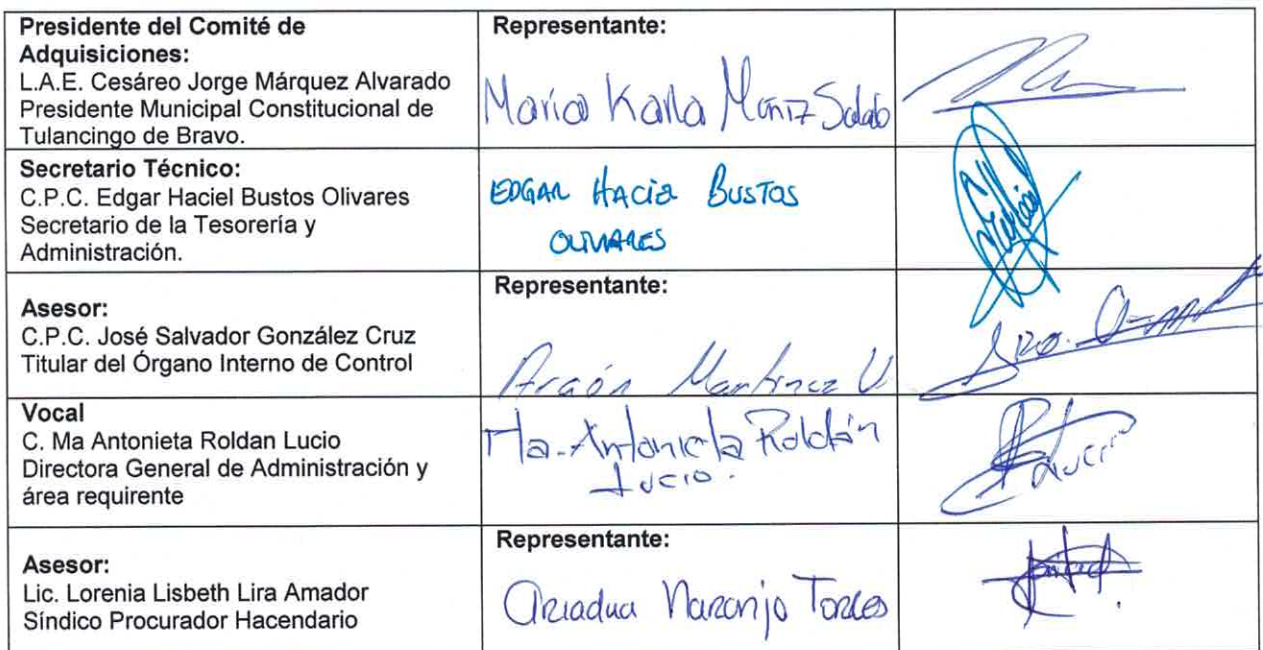 Presidente del Comité de
Adquisiciones:
L.A.E. Cesáreo Jorge Márquez Alvarado
Presidente Municipal Constitucional de
Tulancingo de Bravo.
Representante:
María Karla Muñiz
Secretario Técnico:
C.P.C. Edgar Haciel Bustos Olivares
Secretario de la Tesorería y
Administración.
EDGAR HACIEL BUSTOS
OLIVARES
Asesor:
C.P.C. José Salvador González Cruz
Titular del Órgano Interno de Control
Representante:
Martinez V
Vocal
C. Ma Antonieta Roldan Lucio
Directora General de Administración y
área requirente
Ma. Antonieta Roldán
Lucio.
Asesor:
Lic. Lorenia Lisbeth Lira Amador
Síndico Procurador Hacendario
Representante:
Ariadna Naranjo Torres